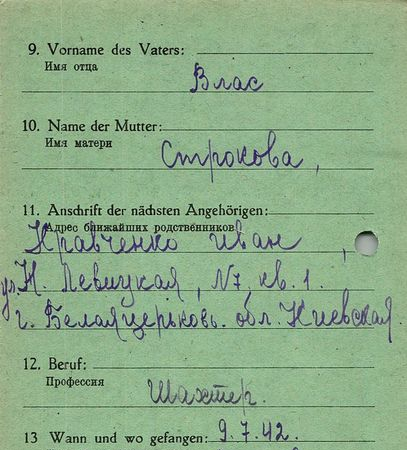 9. Vorname des Vaters:
Имя отца
Влас
10. Name der Mutter:
Имя матери
Строкова,
11. Anschrift der nächsten Angehörigen:
Адрес ближайших родственников
Кравченко Иван,
ул. Н. Левицкая, N7, кв. 1.
г. Белая церьковь. обл. Киевская
12. Beruf:
Профессия
Шахтер.
13 Wann und wo gefangen: 9.7.42.